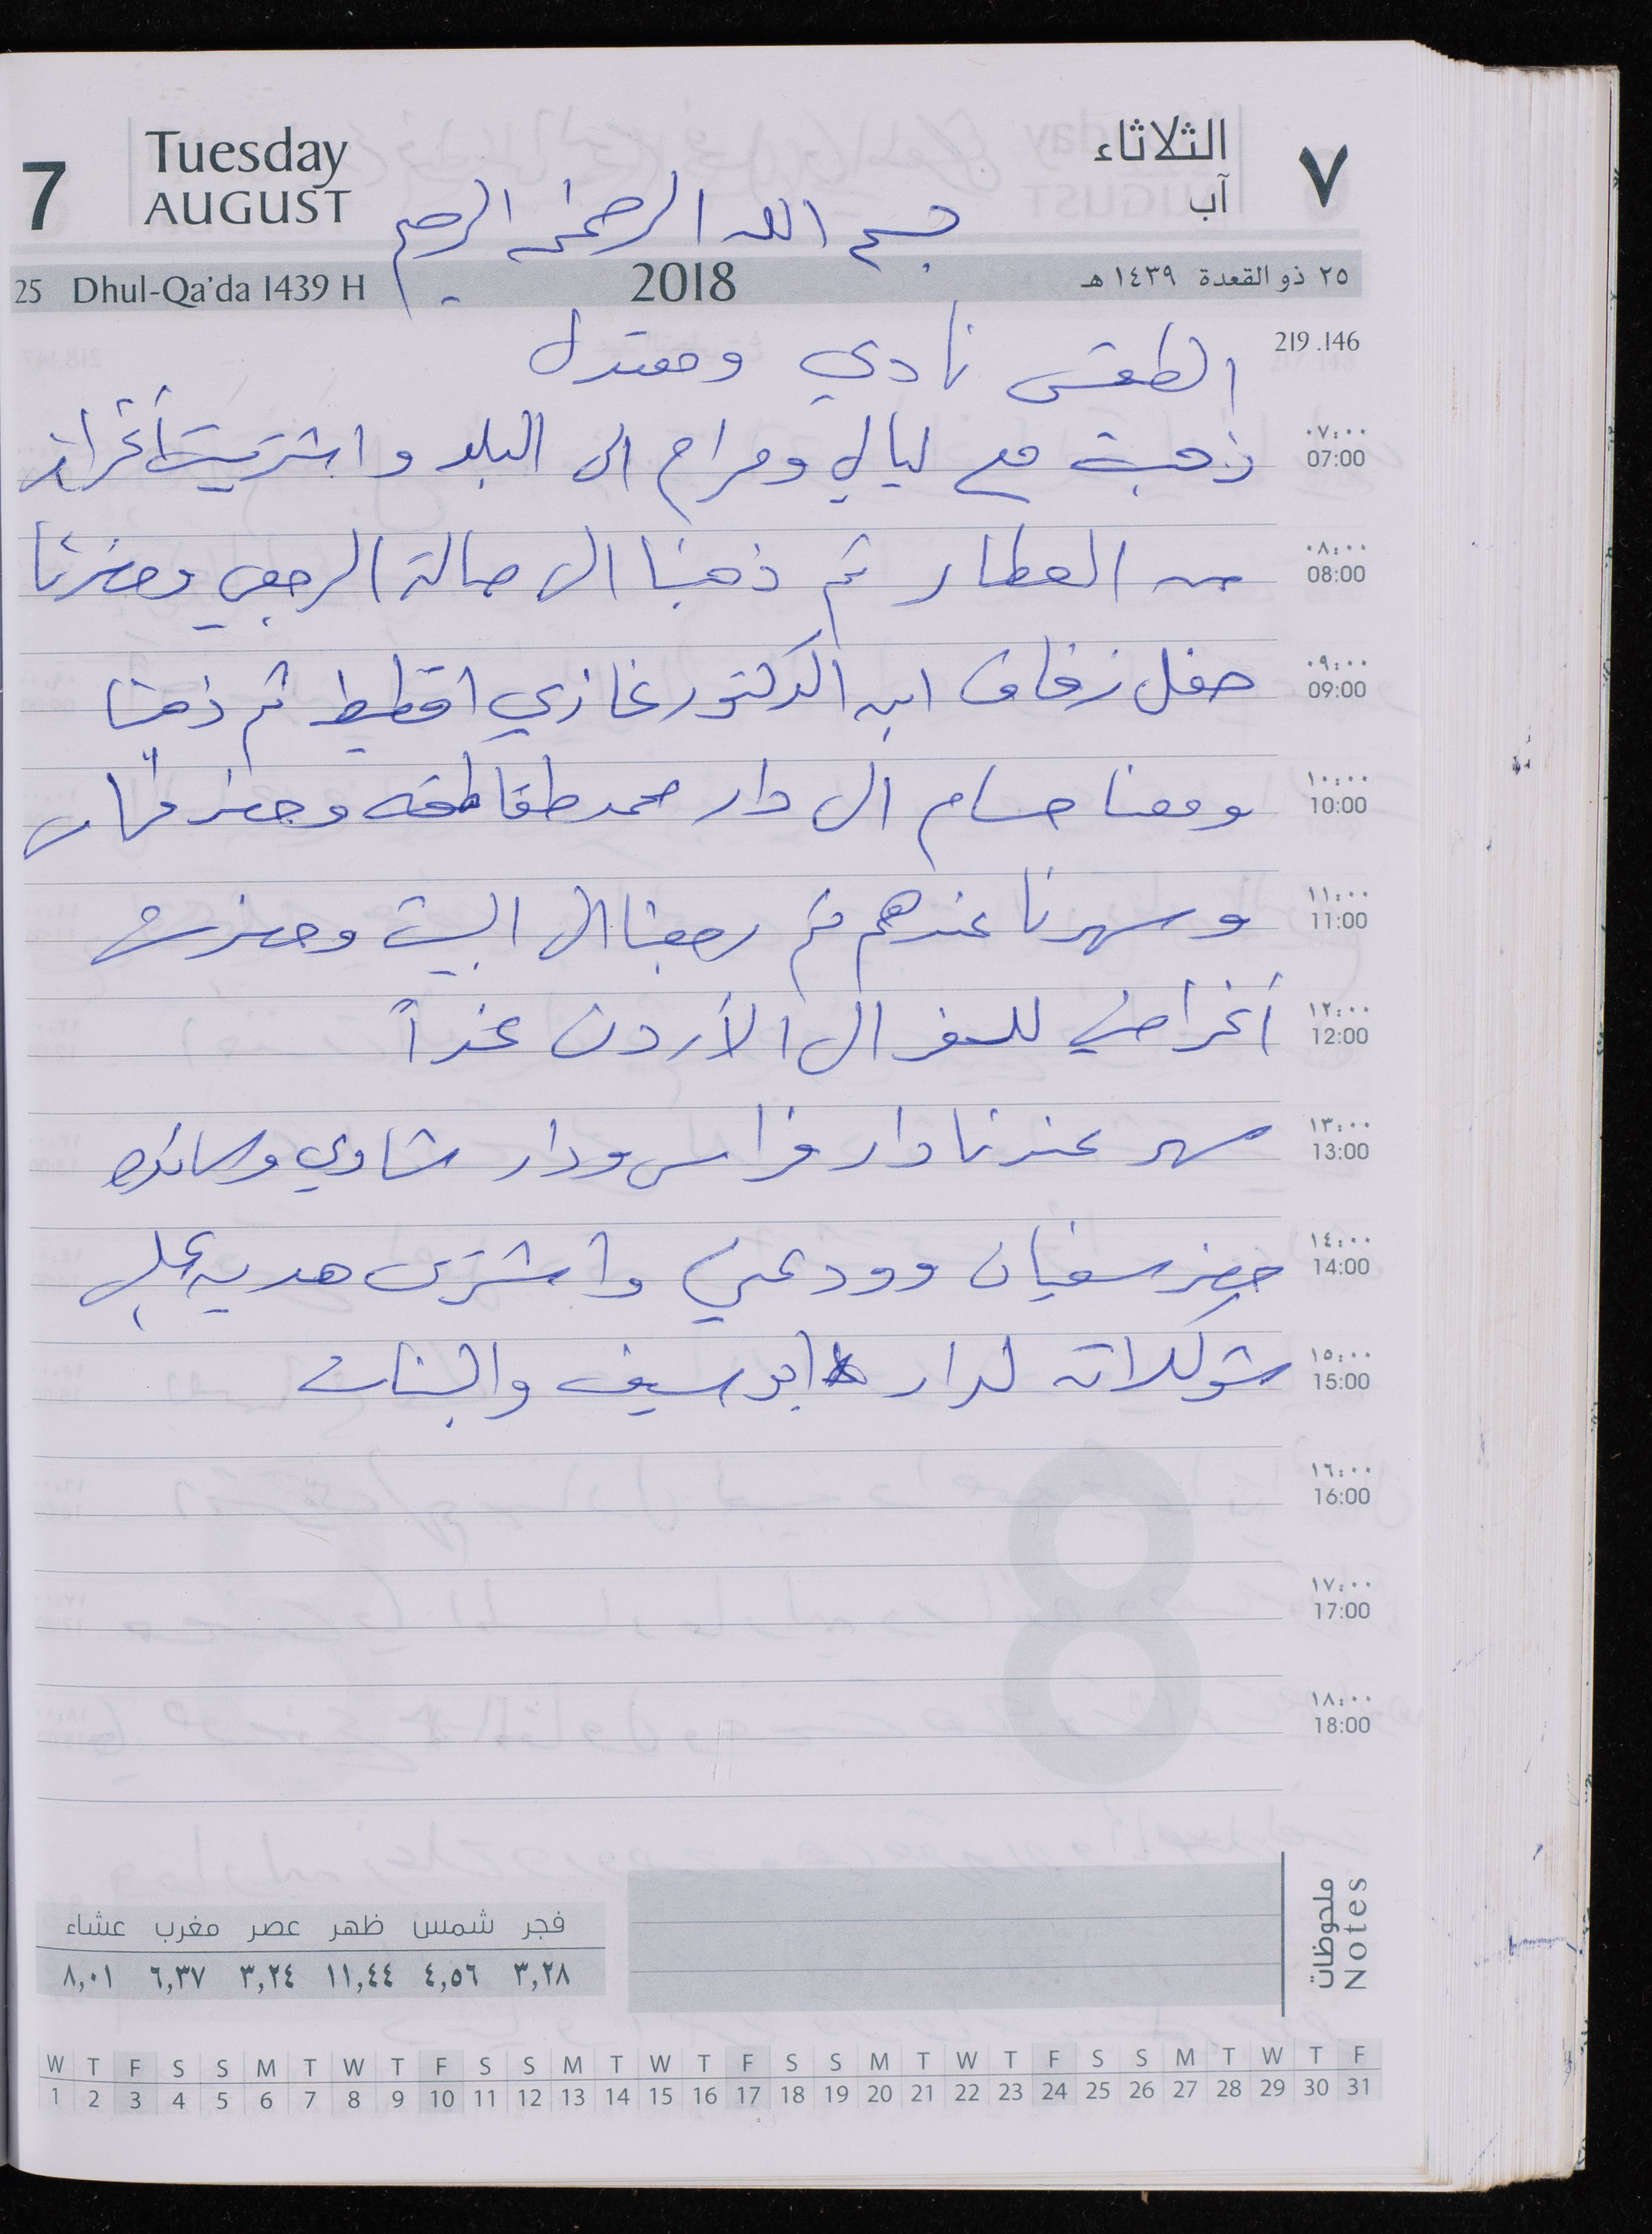 7 Tuesday الثلاثاء ٧
AUGUST آب
بسم الله الرحمن الرحيم
25 Dhul-Qa'da 1439 H 2018 ٢٥ ذو القعدة ١٤٣٩ هـ
219 .146
الطقس نادي ومعتدل
٠٧:٠٠
07:00 ذهبت مع ليالي ومرام الى البلد واشتريت أغراض
٠٨:٠٠
08:00 من العطار ثم ذهبنا الى صالة الرجبي وحضرنا
٠٩:٠٠
09:00 حفل زفاف ابن الدكتور غازي اقطيط ثم ذهبنا
١٠:٠٠
10:00 ومعنا حسام الى دار محمد طقاطقه وحضر
١١:٠٠
11:00 وسهرنا عندهم ثم رجعنا الى البيت وحضرت
١٢:٠٠
12:00 أغراضي للسفر الى الأردن غداً
١٣:٠٠
13:00 سهر عندنا دار فراس ودار شاوي
١٤:٠٠
14:00 حضر سفيان وودعني واشترى هديه علبه
١٥:٠٠
15:00 شوكلاته لدار ابو سيف والبنات
١٦:٠٠
16:00
١٧:٠٠
17:00
١٨:٠٠
18:00
ملحوظات
Notes
فجر شمس ظهر عصر مغرب عشاء
٣,٢٨ ٤,٥٦ ١١,٤٤ ٣,٢٤ ٦,٣٧ ٨,٠١
W T F S S M T W T F S S M T W T F S S M T W T F S S M T W T F
1 2 3 4 5 6 7 8 9 10 11 12 13 14 15 16 17 18 19 20 21 22 23 24 25 26 27 28 29 30 31